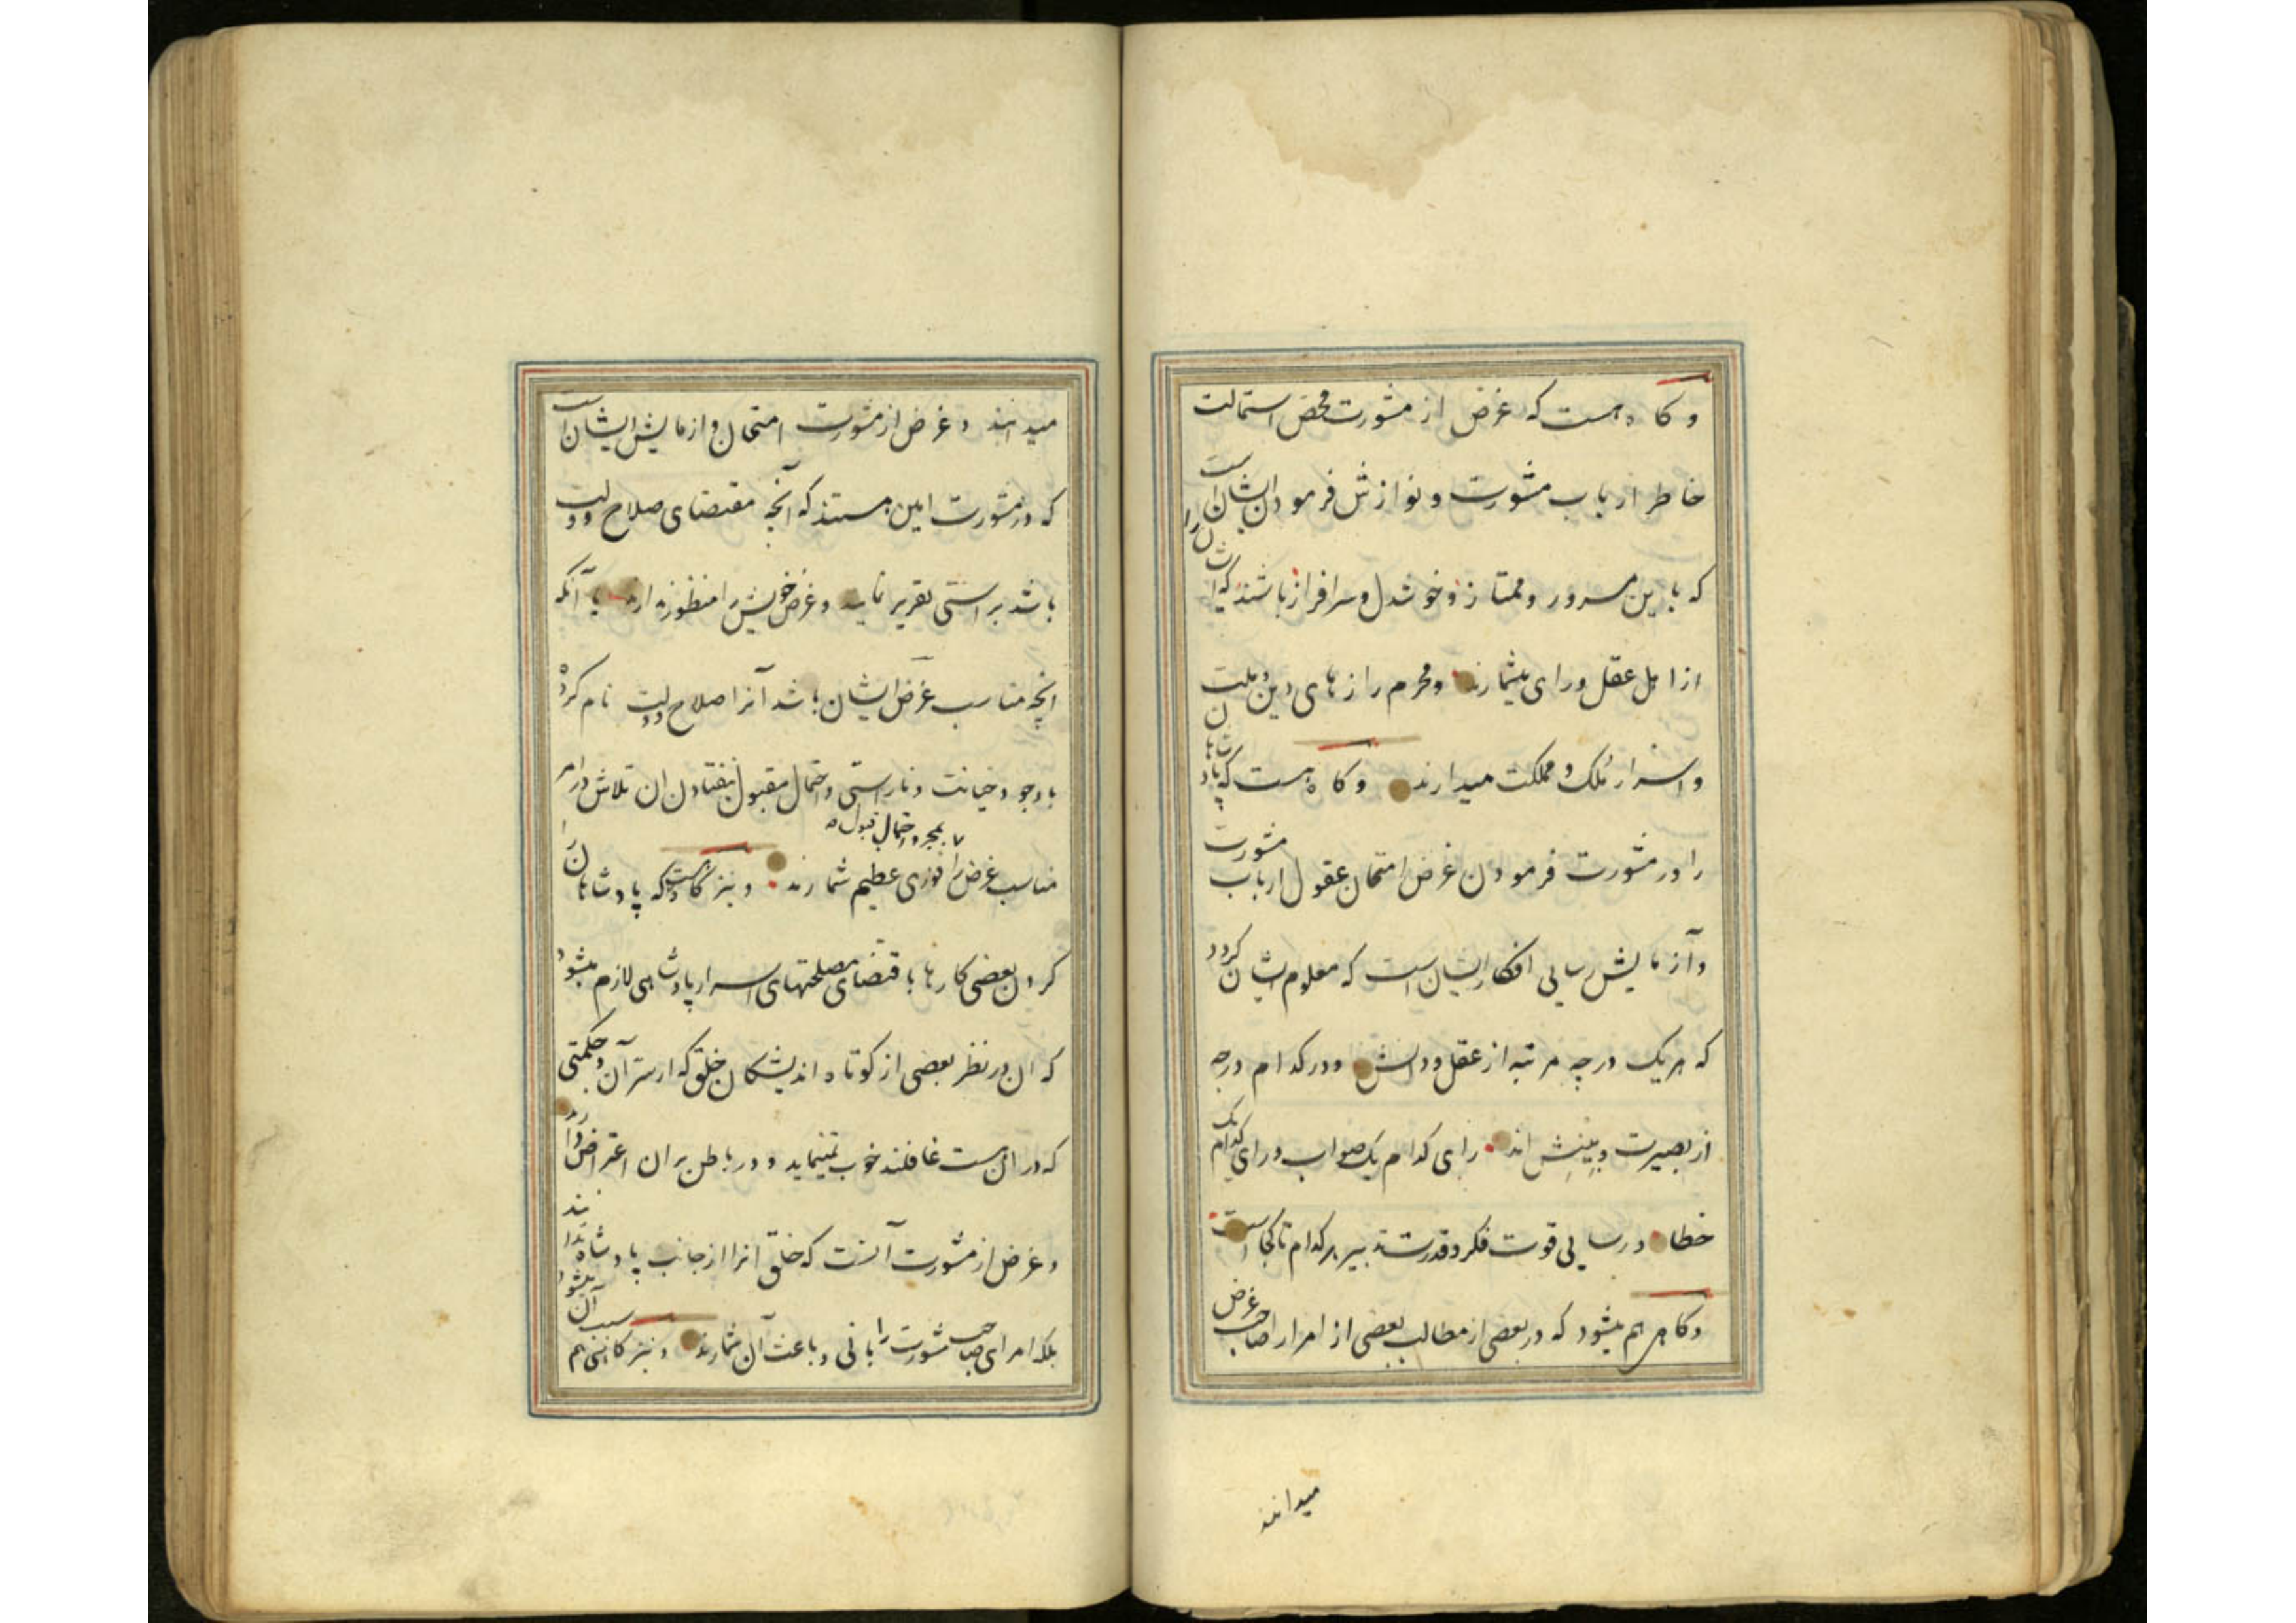 و کاه هست که غرض از مشورت محض استمالت
خاطر ارباب مشورت و نوازش فرمودن ایشان است
که باین مسرور و ممتاز و خوشدل و سرافراز باشند که ایشان را
از اهل عقل و رای میشمارند و محرم رازهای دین و ملت
و اسرار ملک و مملکت میدارند و کاه هست که پادشاهان
را در مشورت فرمودن غرض امتحان عقول ارباب مشورت
و آزمایش رسایی افکار ایشان است که معلوم ایشان کردد
که هر یک در چه مرتبه از عقل و دانش و در کدام درجه
از بصیرت و بینش اند رای کدام یک صواب و رای کدام یک
خطا و رسایی قوت فکر و قدرت تدبیر هر کدام تا کجاست
و کاهی هم میشود که در بعضی از مطالب بعضی از امرا را صاحب غرض
میدانند
میدانند و غرض از مشورت امتحان و ازمایش ایشان است
که در مشورت امین هستند که آنچه مقتضای صلاح دولت
باشد براستی تقریر نمایند و غرض خویش را منظور ندارند یا آنکه
انچه مناسب غرض ایشان باشد آنرا صلاح دولت نام کرده
با وجود خیانت و ناراستی و احتمال مقبول نیفتادن ان تلاش در امر
بمجرد احتمال قبول
مناسب غرض را فوزی عظیم شمارند و نیز کاه هست که پادشاهان را
کردن بعضی کارها باقتضای مصلحتهای اسرار پادشاهی لازم میشود
که ان در نظر بعضی از کوتاه اندیشکان خلق که از سر آن و حکمتی
که در ان هست غافلند خوب نمینماید و در باطن بران اعتراض دارند
و غرض از مشورت آنست که خلق انرا از جانب پادشاه ندانند
بلکه امرای صاحب مشورت را بانی و باعث آن شمارند و نیز کاه هم میشود سبب آن